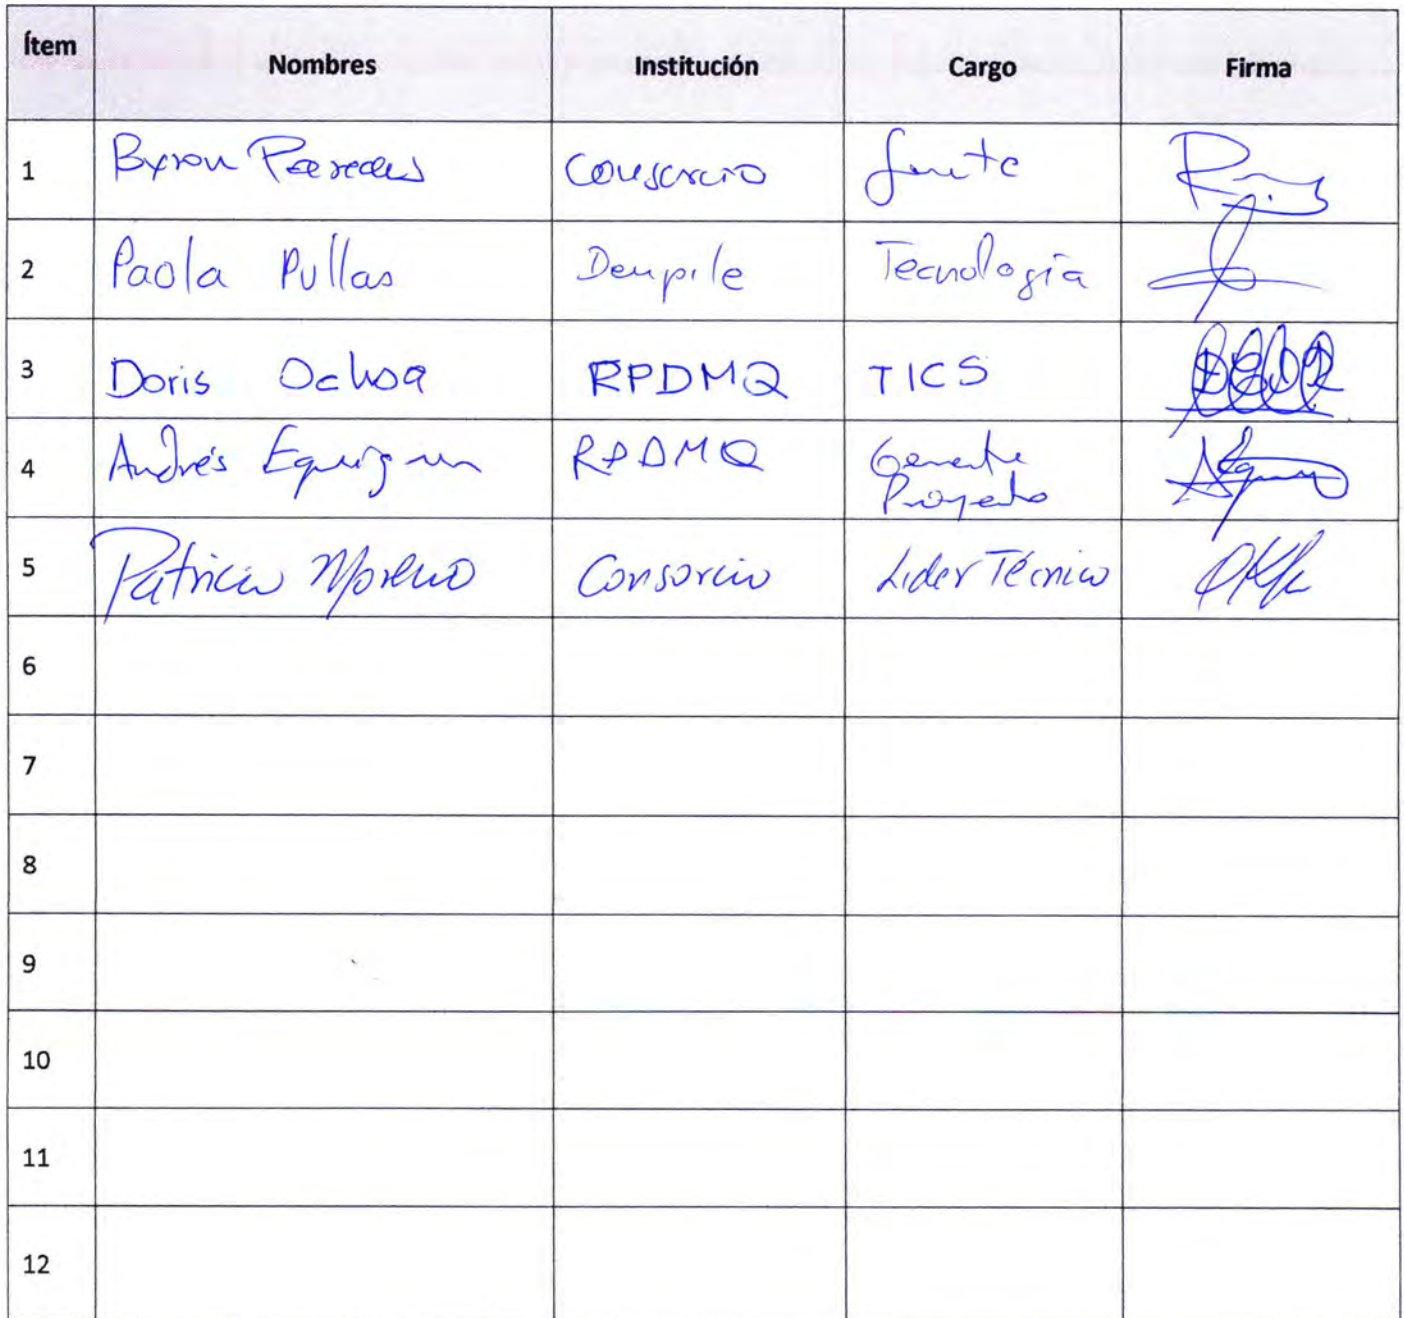 Ítem Nombres Institución Cargo Firma
1 Byron Paredes Consorcio
2 Paola Pullas Tecnología
3 Doris Ochoa RPDMQ TICS
4 Andrés RPDMQ Gerente
Proyecto
5 Patricio Moreno Consorcio Lider Técnico
6
7
8
9
10
11
12